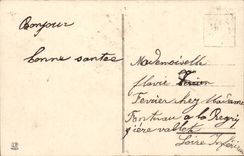 Bonjour
bonne santée
Mademoiselle
flavie
Fevrier chez Madame
Fontenau a la Regri
pière vallet
Loire Inférieure